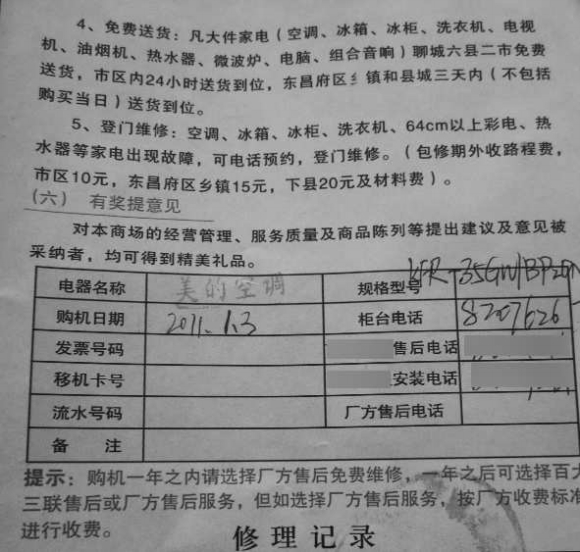 4、免费送货：凡大件家电（空调、冰箱、冰柜、洗衣机、电视
机、油烟机、热水器、微波炉、电脑、组合音响）聊城六县二市免费
送货，市区内24小时送货到位，东昌府区乡镇和县城三天内（不包括
购买当日）送货到位。
5、登门维修：空调、冰箱、冰柜、洗衣机、64cm以上彩电、热
水器等家电出现故障，可电话预约，登门维修。（包修期外收路程费，
市区10元，东昌府区乡镇15元，下县20元及材料费）。
（六） 有奖提意见
对本商场的经营管理、服务质量及商品陈列等提出建议及意见被
采纳者，均可得到精美礼品。
电器名称 美的空调 规格型号 KFR-35GW/BP2DN
购机日期 2011.1.3 柜台电话 8207626
发票号码 售后电话
移机卡号 安装电话
流水号码 厂方售后电话
备 注
提示：购机一年之内请选择厂方售后免费维修，一年之后可选择百大
三联售后或厂方售后服务，但如选择厂方售后服务，按厂方收费标准
进行收费。
修理记录